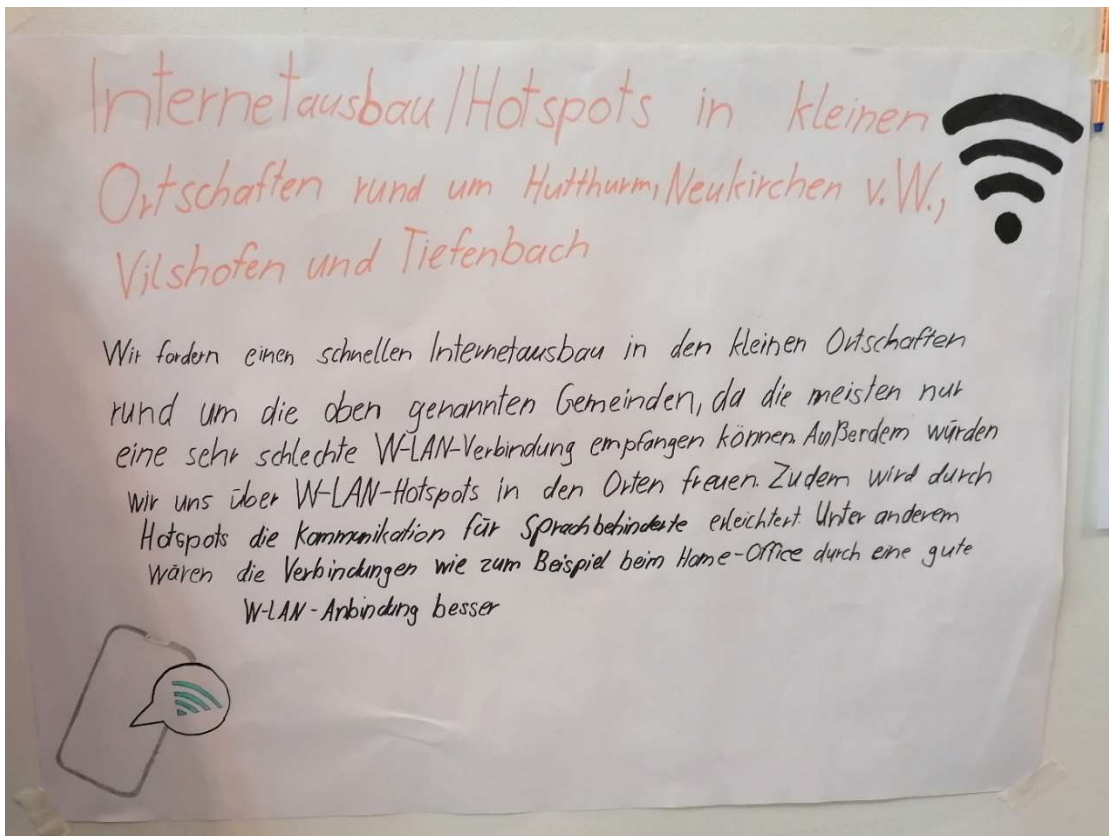 Internetausbau/Hotspots in kleinen
Ortschaften rund um Hutthurm, Neukirchen v. W.,
Vilshofen und Tiefenbach
Wir fordern einen schnellen Internetausbau in den kleinen Ortschaften
rund um die oben genannten Gemeinden, da die meisten nur
eine sehr schlechte W-LAN-Verbindung empfangen können. Außerdem würden
wir uns über W-LAN-Hotspots in den Orten freuen. Zudem wird durch
Hotspots die Kommunikation für Sprachbehinderte erleichtert. Unter anderem
wären die Verbindungen wie zum Beispiel beim Home-Office durch eine gute
W-LAN-Anbindung besser